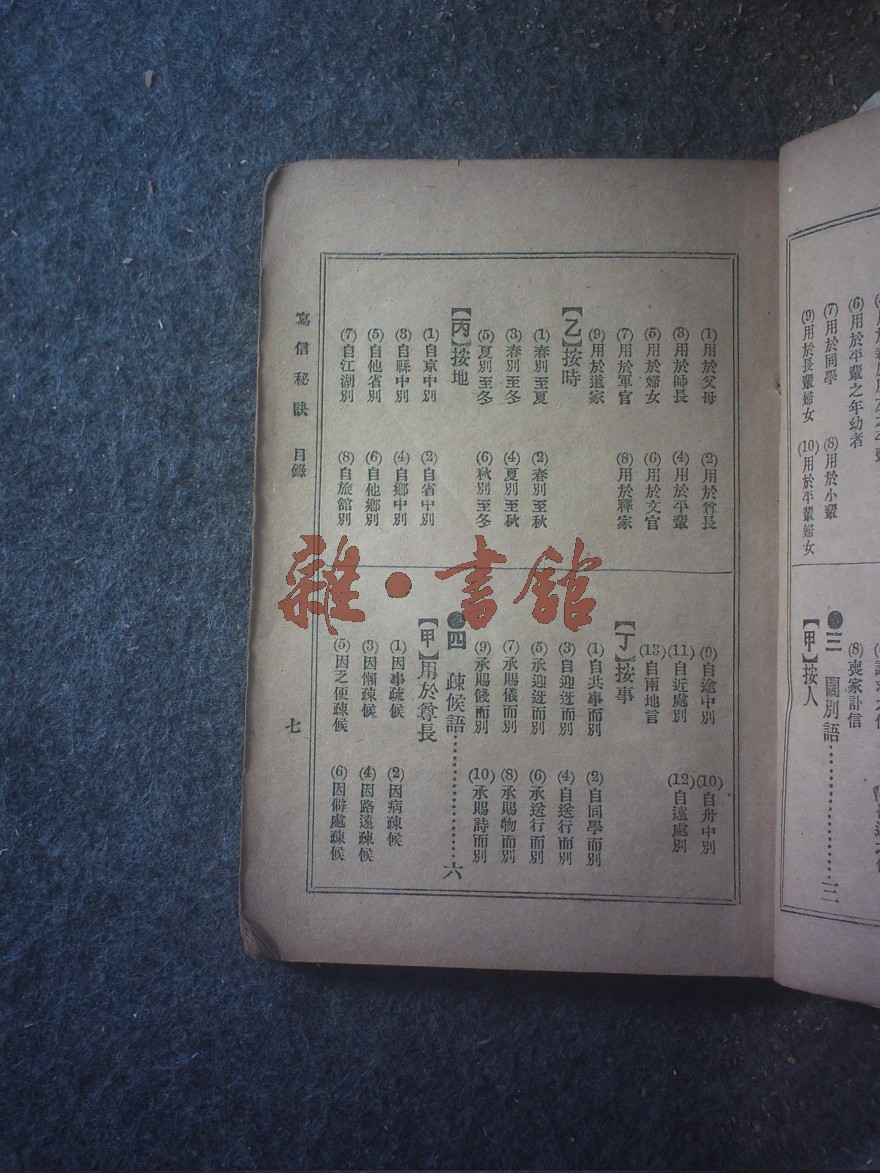 (6)用於平輩之年幼者
(7)用於同學 (8)用於小輩
(9)用於長輩婦女 (10)用於平輩婦女
(8)喪家訃信
三 闊別語……………………三
【甲】按人
(1)用於父母 (2)用於尊長
(3)用於師長 (4)用於平輩
(5)用於婦女 (6)用於文官
(7)用於軍官 (8)用於釋家
(9)用於道家
【乙】按時
(1)春別至夏 (2)春別至秋
(3)春別至冬 (4)夏別至秋
(5)夏別至冬 (6)秋別至冬
【丙】按地
(1)自京中別 (2)自省中別
(3)自縣中別 (4)自鄉中別
(5)自他省別 (6)自他鄉別
(7)自江湖別 (8)自旅館別
(9)自途中別 (10)自舟中別
(11)自近處別 (12)自遠處別
(13)自兩地言
【丁】按事
(1)自共事而別 (2)自同學而別
(3)自迎迓而別 (4)自送行而別
(5)承迎迓而別 (6)承送行而別
(7)承賜儀而別 (8)承賜物而別
(9)承賜餞而別 (10)承賜詩而別
四 疎候語……………………六
【甲】用於尊長
(1)因事疏候 (2)因病疎候
(3)因懶疎候 (4)因路遠疎候
(5)因乏便疎候 (6)因僻處疎候
寫信秘訣 目錄
七
雜·書館